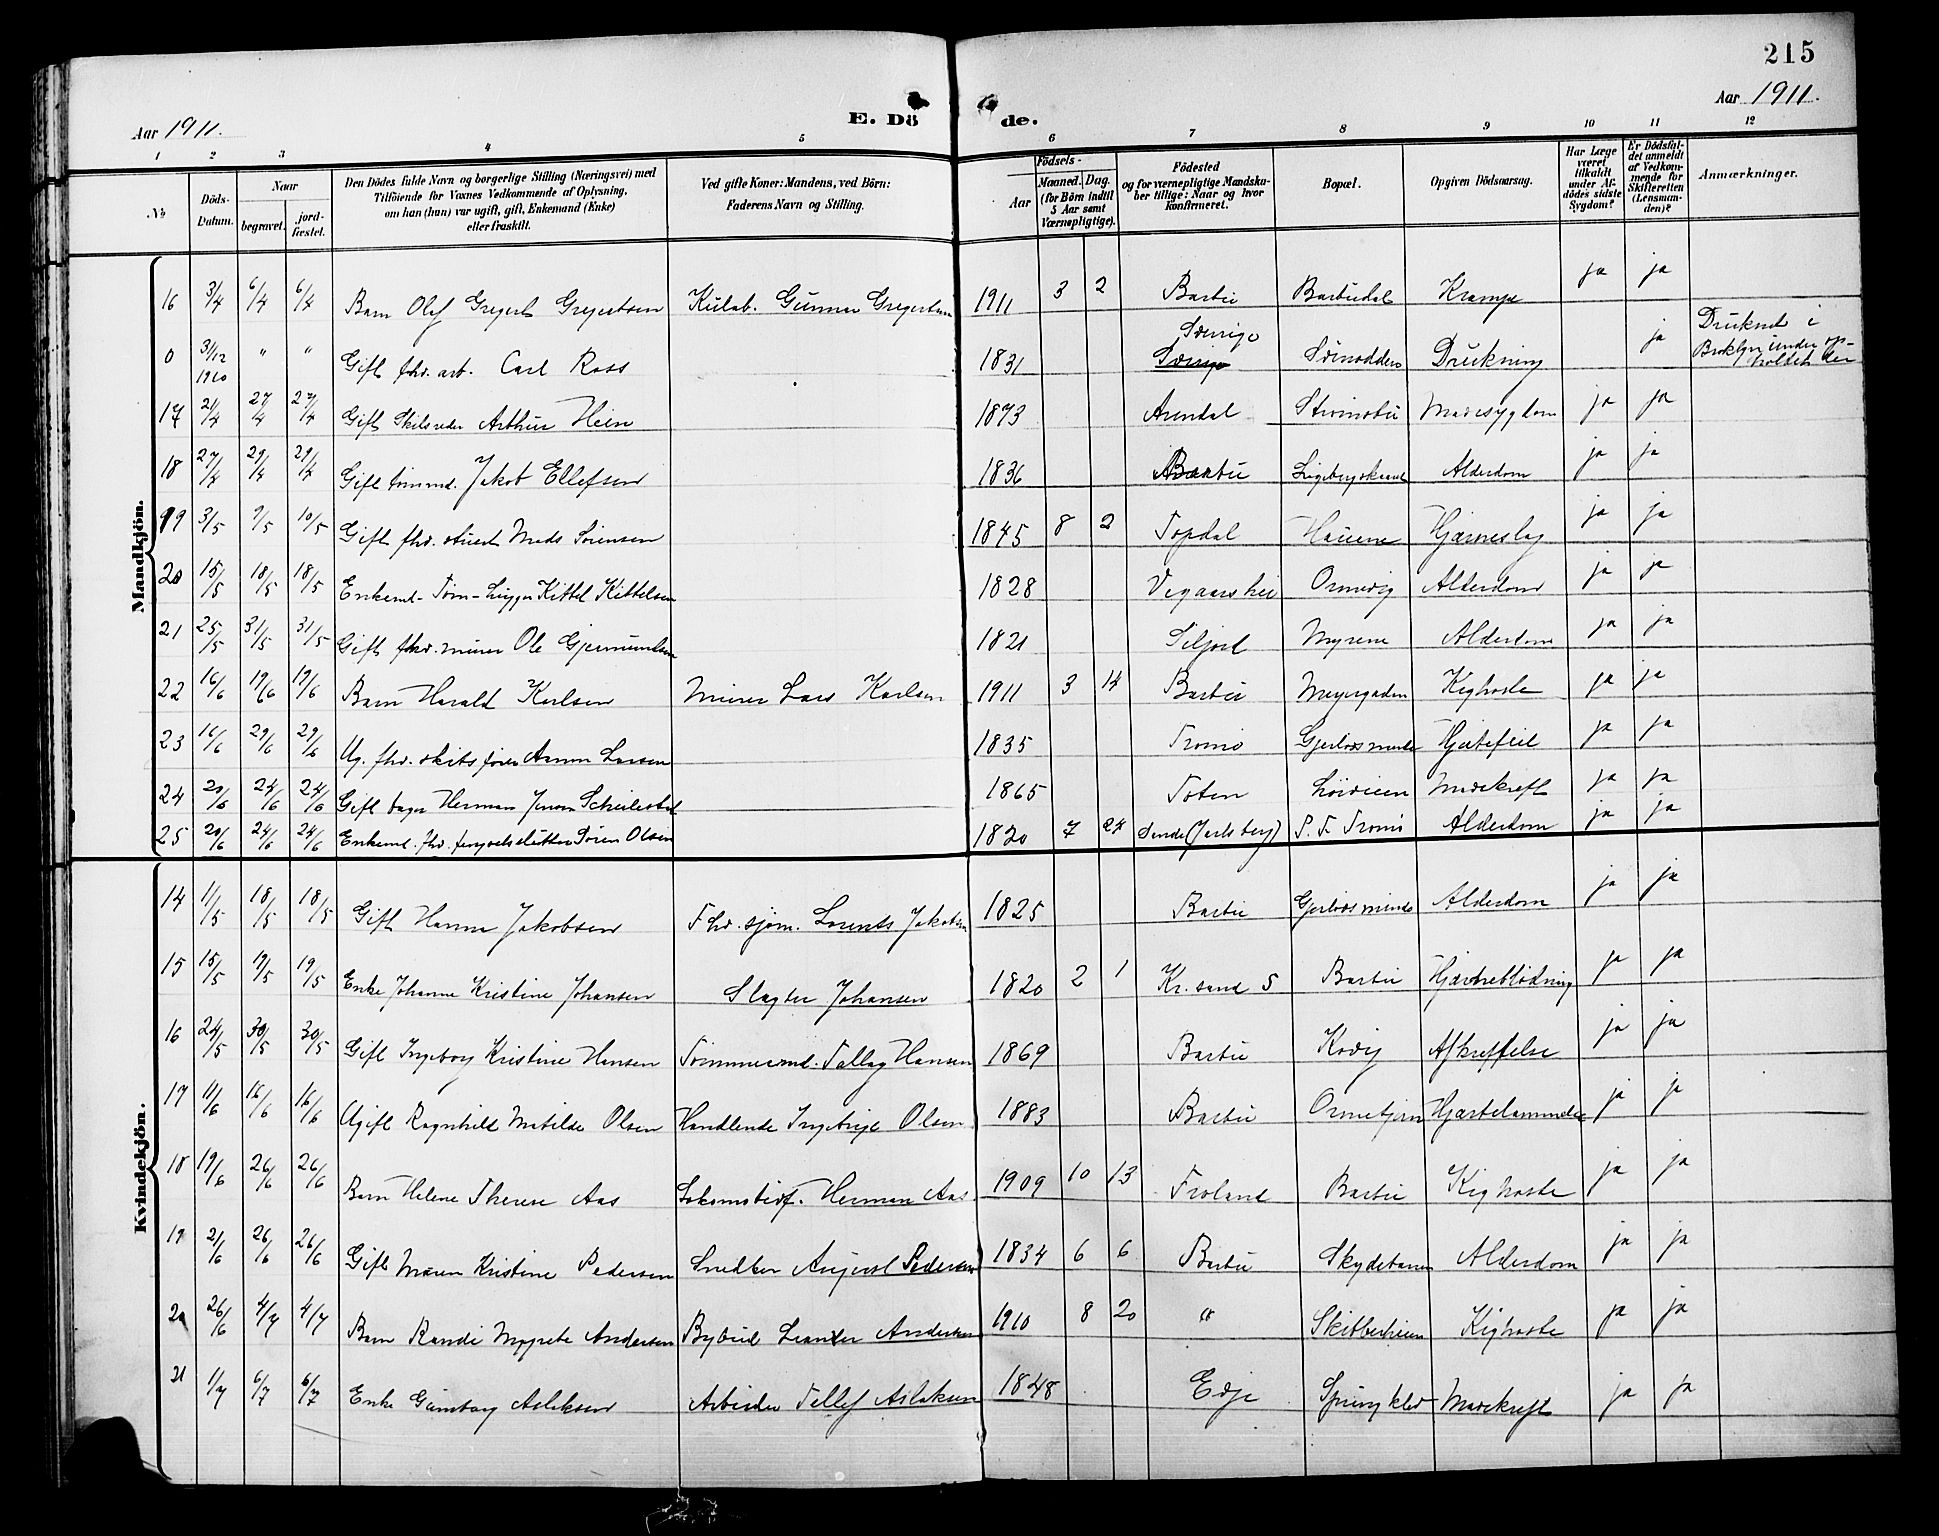 215
Aar 1911.
E. Dö de.
Aar 1911.
1 2 3 4 5 6 7 8 9 10 11 12
№
Döds-Datum.
Naar
begravet.
jord-fæstet.
Den Dödes fulde Navn og borgerlige Stilling (Næringsvei) med
Tilföiende for Voxnes Vedkommende af Oplysning,
om han (hun) var ugift, gift, Enkemand (Enke)
eller fraskilt.
Ved gifte Koner: Mandens, ved Börn:
Faderens Navn og Stilling.
Födsels-
Aar
Maaned. Dag.
(for Börn indtil
5 Aar samt
Værnepligtige).
Födested
og for værnepligtige Mandska-
ber tillige: Naar og hvor
konfirmeret.
Bopæl.
Opgiven Dödsaarsag.
Har Læge
været
tilkaldt
under Af-
dödes sidste
Sygdom?
Er Dödsfal-
det anmeldt
af Vedkom-
mende for
Skifteretten
(Lensman-
den)?
Anmærkninger.
Mandkjön.
16 3/4 6/4 6/4 Barn Olaf Gregert Gregertsen Kulab. Gunnar Gregertsen 1911 3 2 Barbu Barbudal Krampe ja ja
0 31/12 1910 " " Gift fhv. arb. Carl Ross 1831 Sverige Sverige Drukning ja Druknet i Broklyn under op-holdet der
17 21/4 27/4 27/4 Gift Skibsreder Arthur Hein 1873 Arendal Strømsbu Mavesygdom ja ja
18 27/4 29/4 29/4 Gift tømmd. Jakob Ellefsen 1836 Barbu Alderdom ja ja
19 3/5 9/5 10/5 Gift fhv. stuert Mads Sørensen 1845 8 2 Topdal Hauene Hjærneslag ja ja
20 15/5 18/5 18/5 Enkemd. Tøm-lugger Kittel Kittelsen 1828 Vegaarshei Ormevig Alderdom ja ja
21 25/5 31/5 31/5 Gift fhv. murer Ole Gjermundsen 1821 Siljord Myrene Alderdom ja ja
22 16/6 19/6 19/6 Barn Harald Karlsen Murer Lars Karlsen 1911 3 14 Barbu Meyergaden Kighoste ja ja
23 16/6 29/6 29/6 Ug. fhv. skibsfører Larsen 1835 Tromø Gjerløsminde Hjertefeil ja ja
24 20/6 24/6 24/6 Gift bager Herman Jenson 1865 Toten Mavekreft ja ja
25 20/6 24/6 24/6 Enkemd. fhv. fengselsslutter Søren Olsen 1820 7 24 Sende (Jarlsberg) P. T. Tromø Alderdom ja ja
Kvindekjön.
14 11/5 18/5 18/5 Gift Hanna Jakobsen Fhv. sjøm. Lorents Jakobsen 1825 Barbu Gjerløsminde Alderdom ja ja
15 15/5 19/5 19/5 Enke Johanne Kristine Johansen Slagter Johansen 1820 2 1 Kr.sand S Barbu Hjærneblødning ja ja
16 24/5 30/5 30/5 Gift Ingeborg Kristine Hansen Tømmermd. Tallag Hansen 1869 Barbu Kovig Afkreftelse ja ja
17 11/6 16/6 16/6 Ugift Ragnhild Matilde Olsen Handlende Ingebrigt Olsen 1883 Barbu Ormetjern Hjærtelammelse ja ja
18 19/6 26/6 26/6 Barn Helene Therese Aas Lokomotivf. Herman Aas 1909 10 13 Froland Barbu Kighoste ja ja
19 21/6 26/6 26/6 Gift Maren Kristine Pedersen Snedker August Pedersen 1834 6 6 Barbu Skydebanen Alderdom ja ja
20 26/6 4/7 4/7 Barn Randi Margrete Andersen Bybud Leander Andersen 1910 8 20 " Skibberheien Kighoste ja ja
21 1/7 6/7 6/7 Enke Gunborg Aslaksen Arbeider Tellef Aslaksen 1848 Evje Springklev Mavekreft ja ja